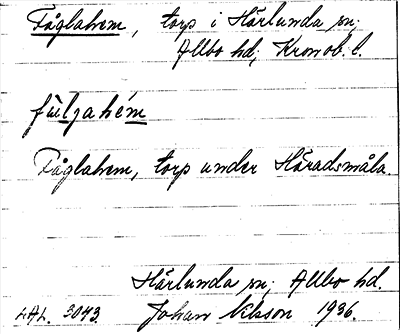 Fåglahem, torp i Härlunda sn;
Allbo hd; Kronob. l.
fúljahém
Fåglahem, torp under Häradsmåla.
Härlunda sn; Allbo hd.
LAL. 3043. Johan Nilsson 1936.